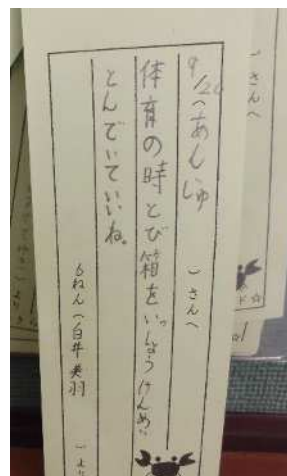 9/26(あんじゅ )さんへ
体育の時とび箱をいっしょうけんめい
とんでいていいね。
6ねん(白井 美羽 )より
さんへ